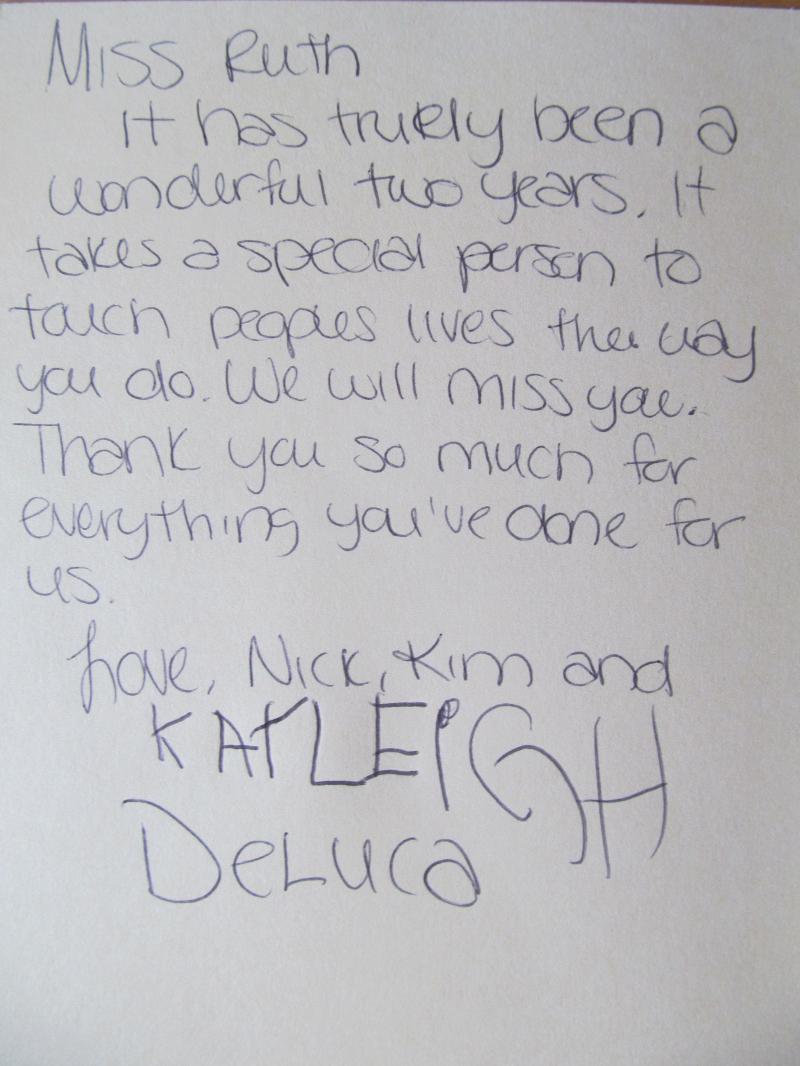 Miss Ruth
It has truely been a
wonderful two years. It
takes a special person to
touch peoples lives the way
you do. We will miss you.
Thank you so much for
everything you've done for
us.
Love, Nick, Kim and
KAYLEiGH
DeLuca